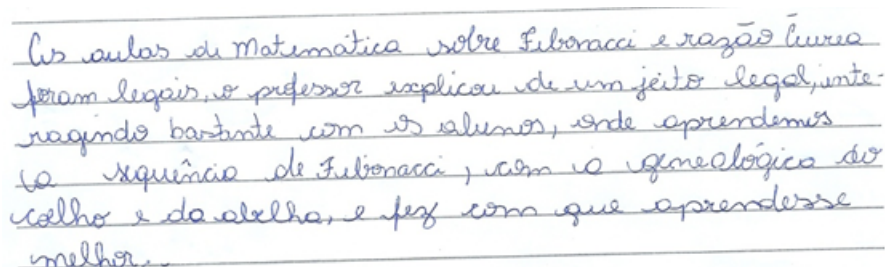 As aulas de matemática sobre Fibonacci e razão Áurea
foram legais, o professor explicou de um jeito legal, inte-
ragindo bastante com os alunos, onde aprendemos
a sequência de Fibonacci, com a genealógica do
coelho e da abelha, e fez com que aprendesse
melhor.